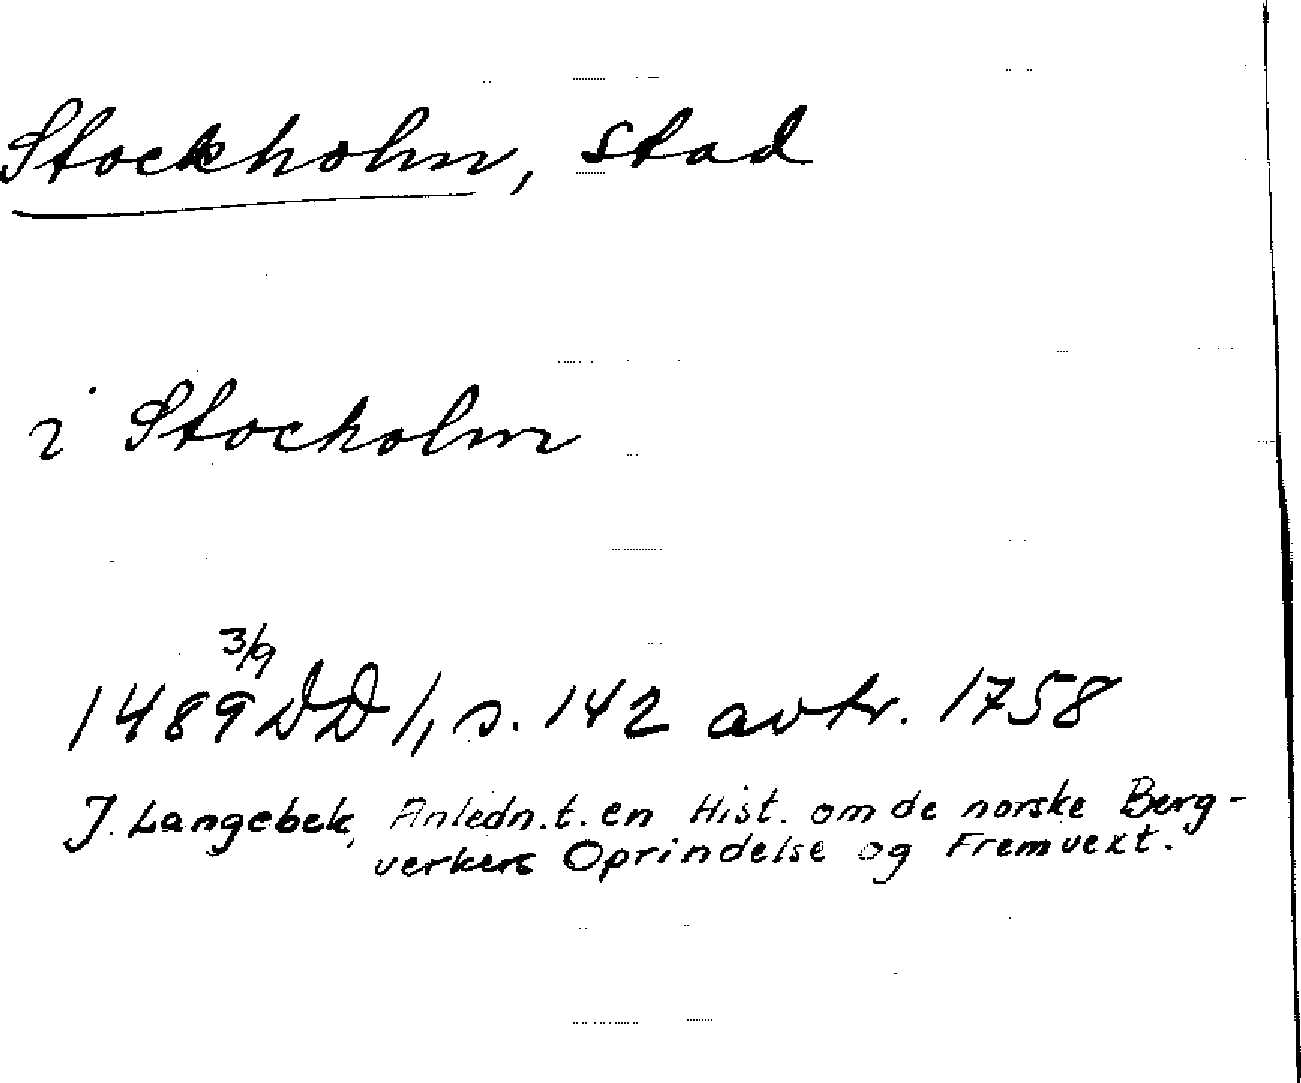 Stockholm, stad
i Stocholm
3/9
1489 DD 1, s. 142 avtr. 1758
J. Langebek, Anledn. t. en Hist. om de norske Berg-
verkers Oprindelse og Fremvext.